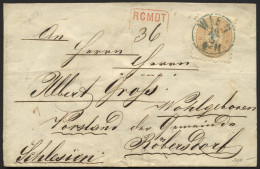 RCMDT
36
WIEN
An
Herrn
Herrn
Albert Groß
Wohlgeboren
Vorstand der Gemeinde
Röbersdorf
Schlesien